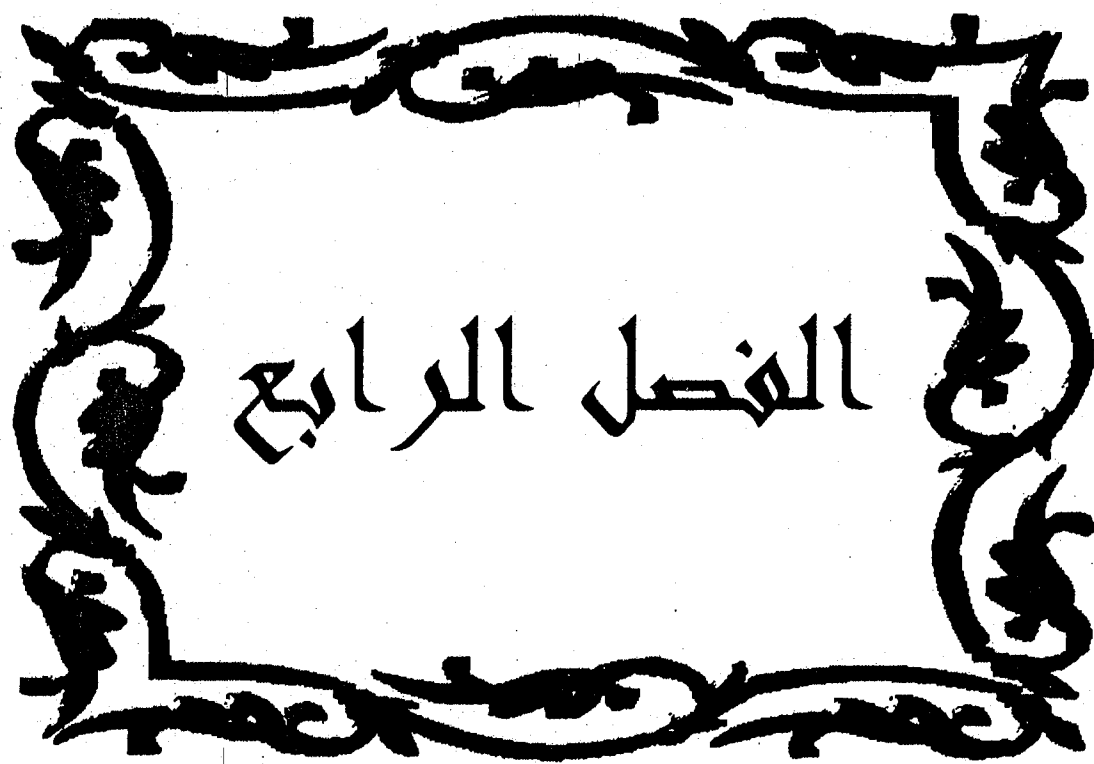 الفصل الرابع